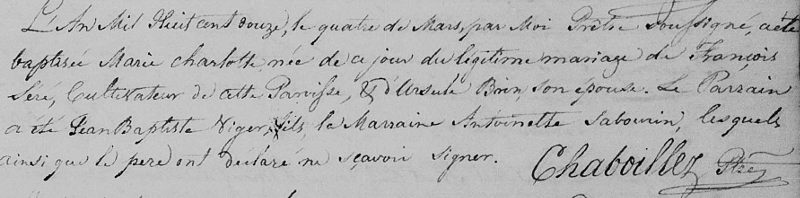 L'An Mil Huit cent douze, le quatre de Mars, par Moi Prêtre Soussigné, a été
baptisée Marie charlotte née de ce jour du légitime mariage de François
Sere, Cultivateur de cette Paroisse, & d'Ursule Brin, son épouse. Le Parrain
a été Jean Baptiste Viger, fils, la Marraine Antoinette Sabourin, lesquels
ainsi que le pere ont déclaré ne sçavoir signer. Chaboillez Ptre